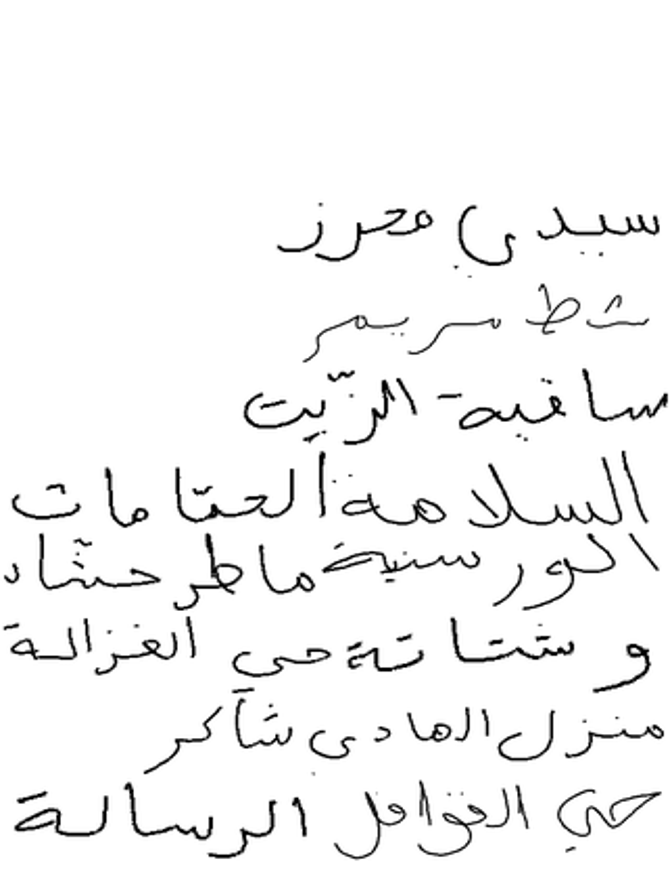 سيدي محرز
شط مريم
ساقية الزّيت
السلامة الحمّامات
الورسنية ماطر حشّاد
وشتاتة حي الغزالة
منزل الهادي شاكر
حي القوافل الرسالة